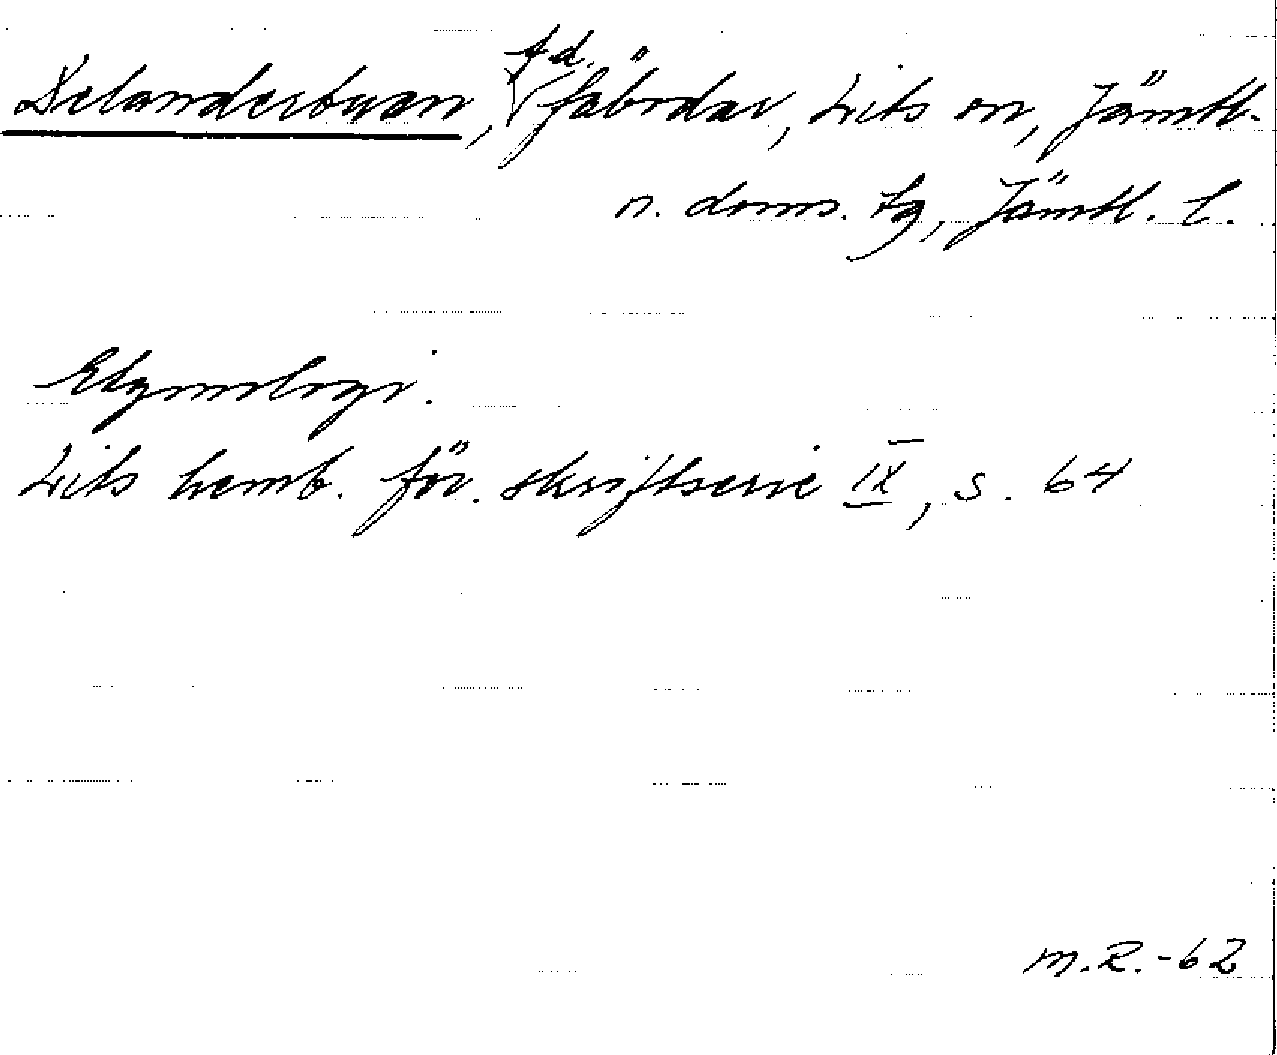 Delanderbuan, f.d. fäbodar, Lits sn, Jämtl.
n. doms. tg, Jämtl. l.
Etymologi.
Lits hemb. för. skriftserie IX, s. 64
M.R.-62